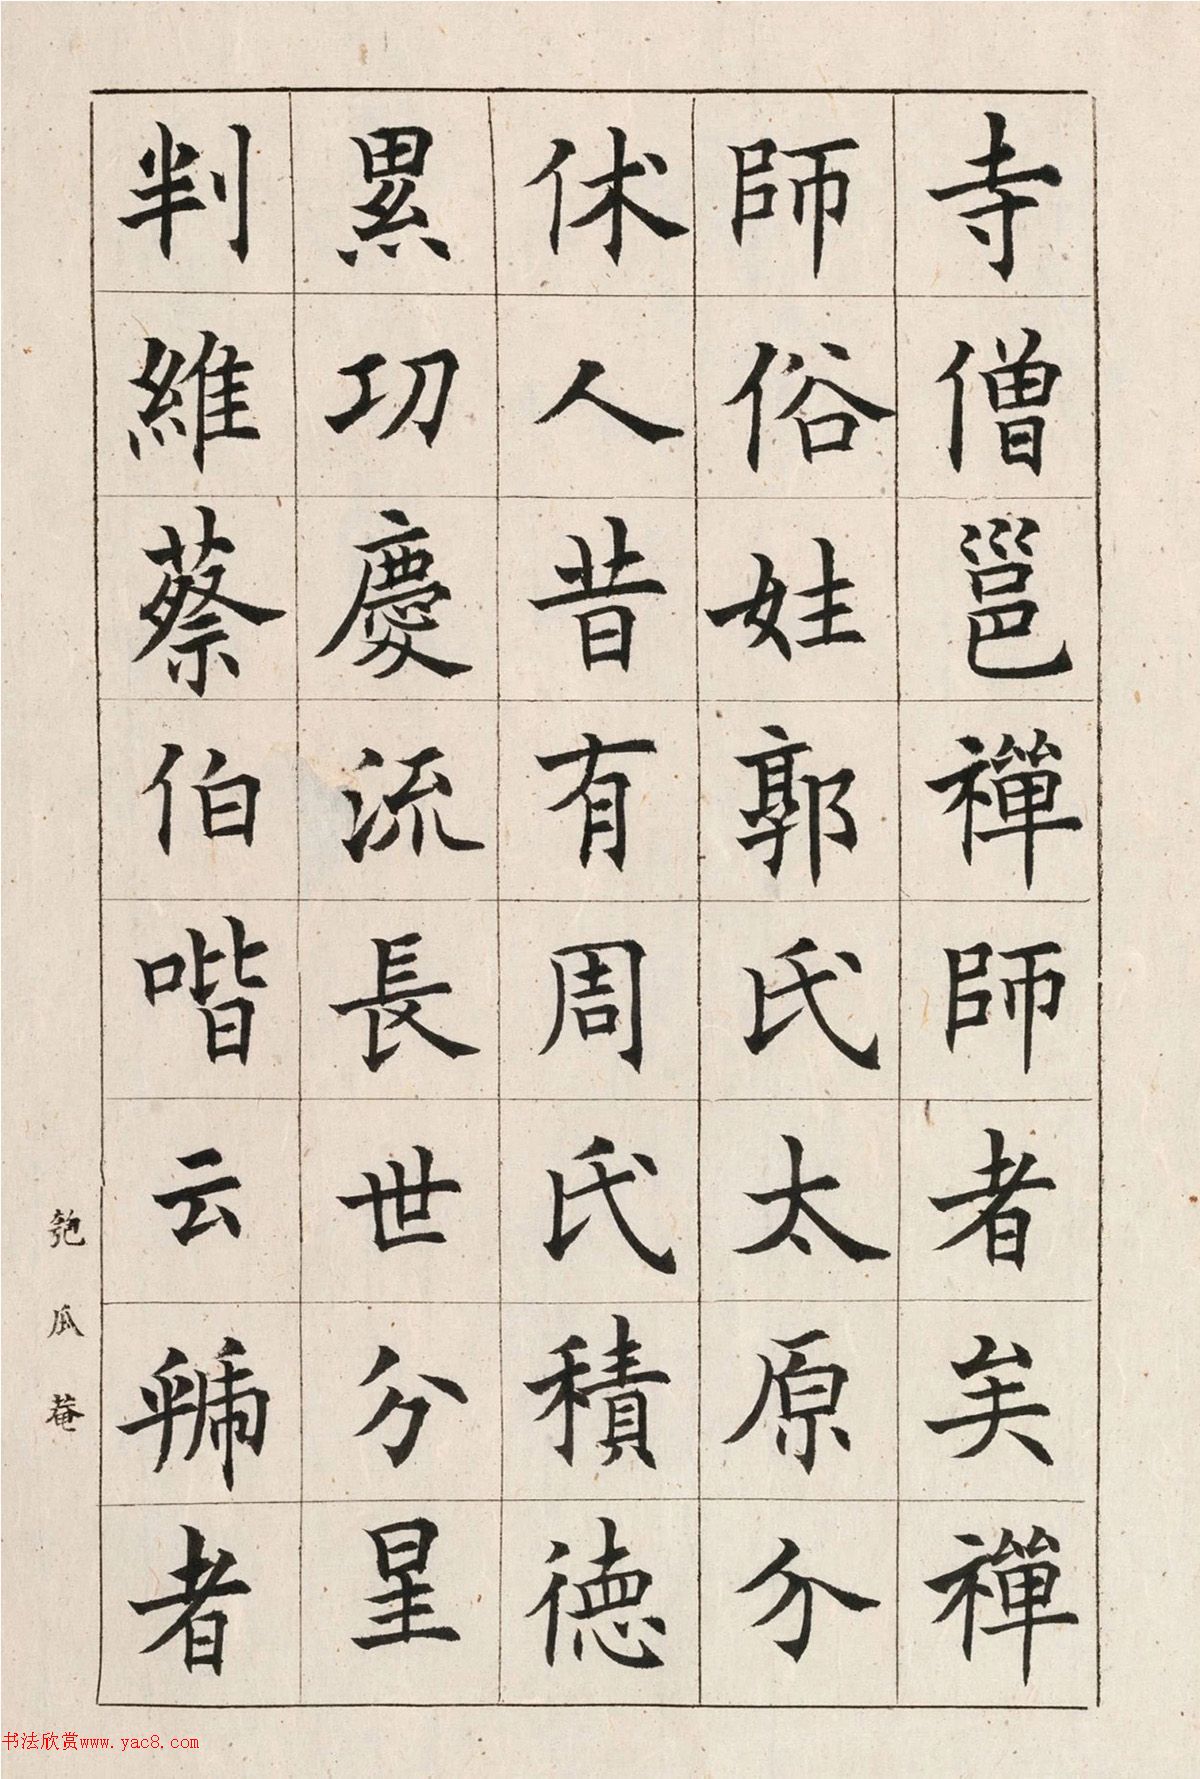 寺僧邕禪師者矣禪
師俗姓郭氏太原介
休人昔有周氏積德
累功慶流長世分星
判維蔡伯喈云虢者
匏瓜菴
书法欣赏www.yac8.com